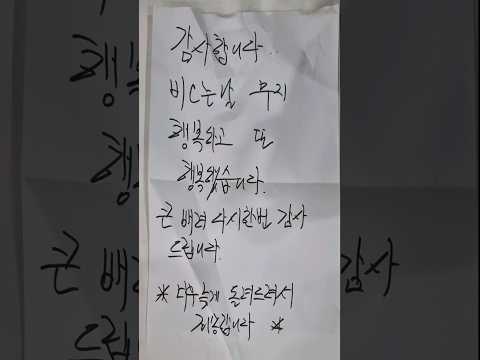 감사합니다..
비오는날 무지
행복하고 또
행복했습니다.
큰 배려 다시한번 감사
드립니다.
* 너무늦게 돌려드려서
죄송합니다 *